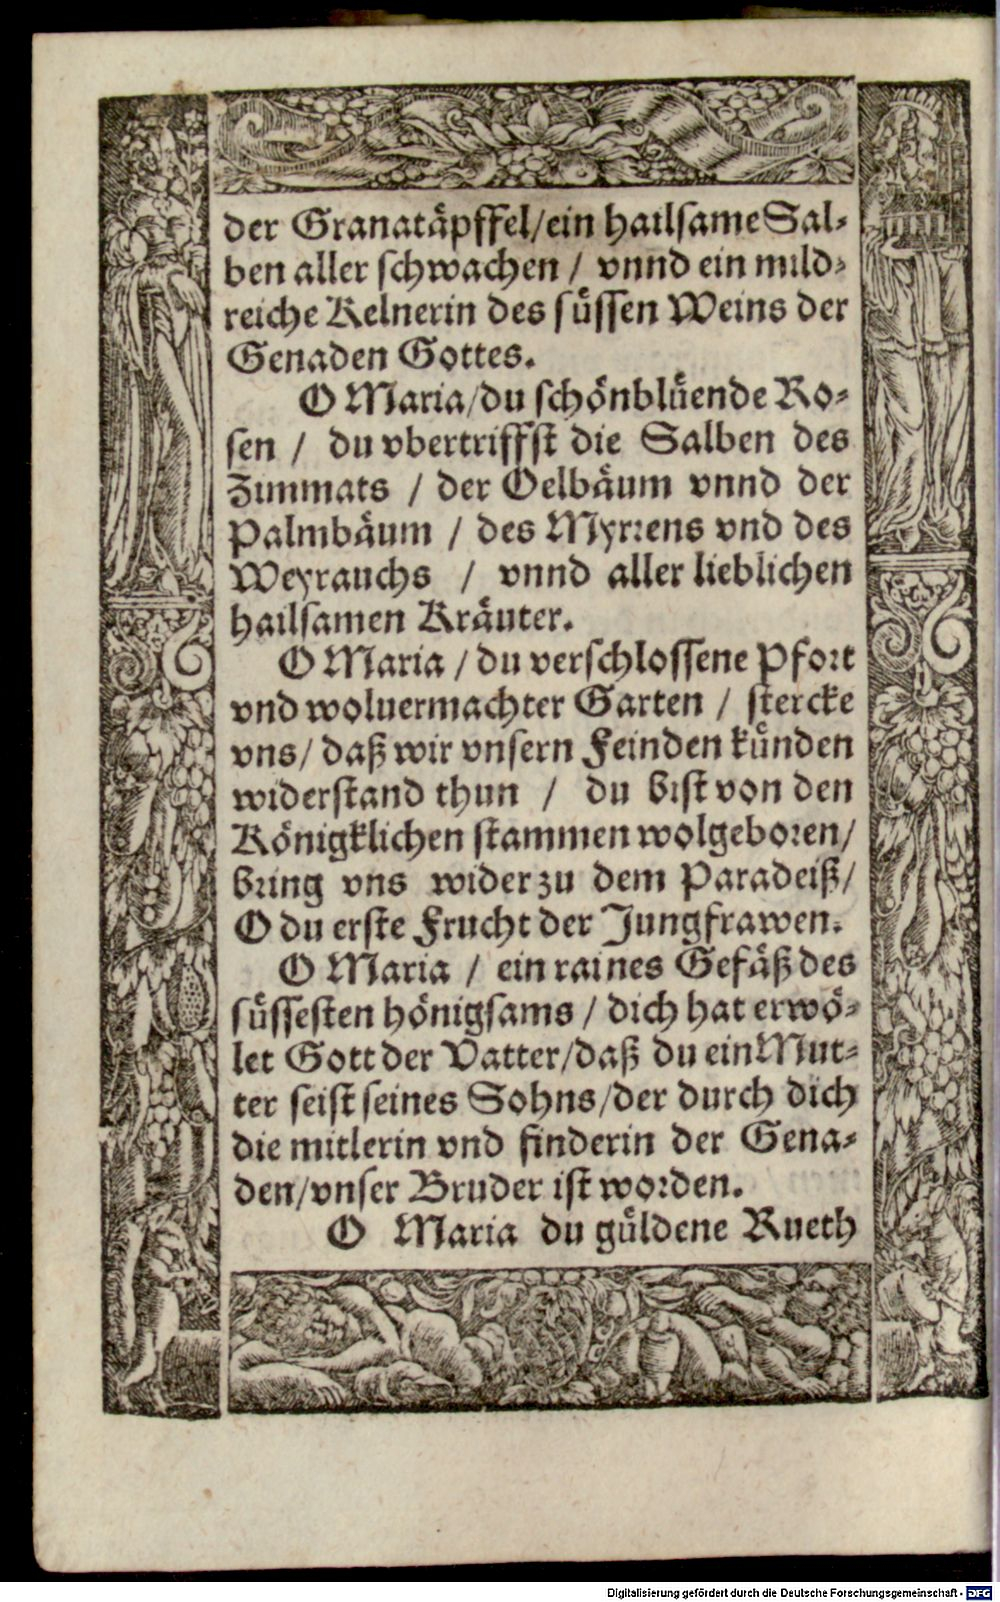 der Granatäpffel/ein hailsame Sal-
ben aller schwachen / vnnd ein mild-
reiche Kelnerin des süssen Weins der
Genaden Gottes.
O Maria/du schönblüende Ro-
sen / du vbertriffst die Salben des
Zimmats / der Oelbäum vnnd der
Palmbäum / des Myrrens vnd des
Weyrauchs / vnnd aller lieblichen
hailsamen Kräuter.
O Maria / du verschlossene Pfort
vnd woluermachter Garten / stercke
vns/ daß wir vnsern Feinden künden
widerstand thun / du bist von den
Königklichen stammen wolgeboren/
bring vns wider zu dem Paradeiß/
O du erste Frucht der Jungfrawen.
O Maria / ein raines Gefäß des
süssesten hönigsams / dich hat erwö-
let Gott der Vatter/daß du ein Mut-
ter seist seines Sohns/der durch dich
die mitlerin vnd finderin der Gena-
den/vnser Bruder ist worden.
O Maria du güldene Rueth
Digitalisierung gefördert durch die Deutsche Forschungsgemeinschaft - DFG